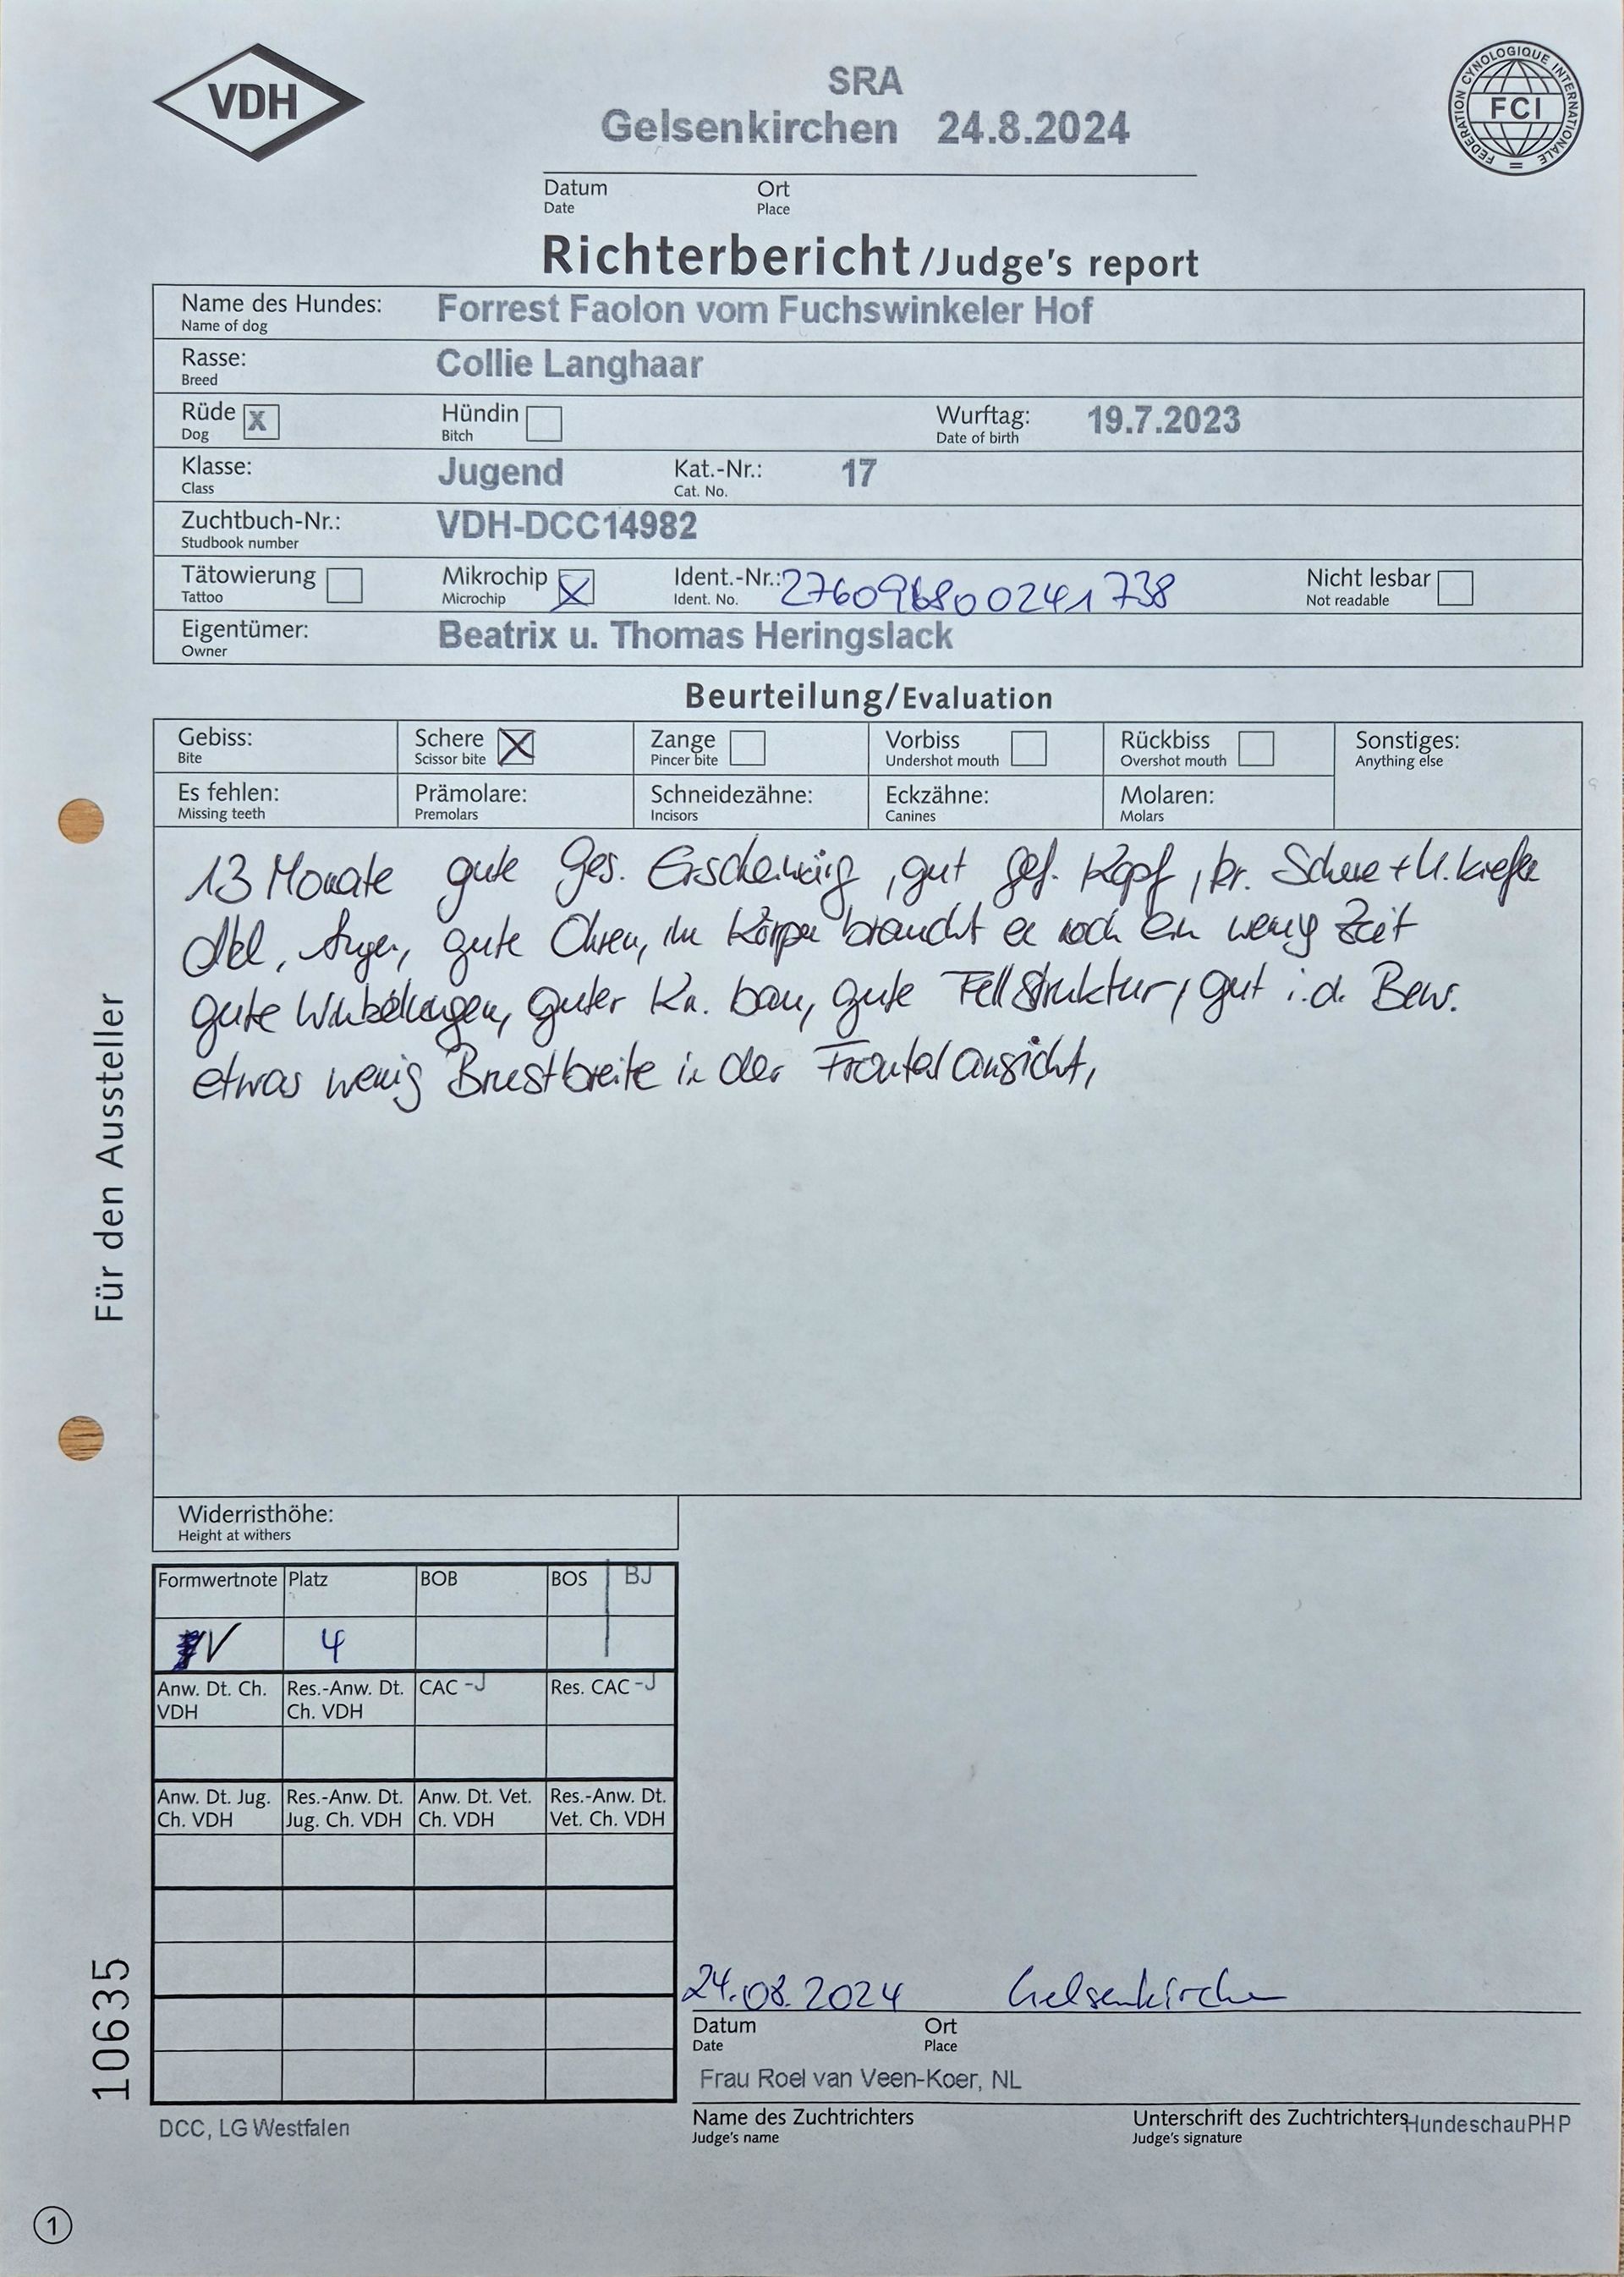 VDH
SRA
Gelsenkirchen 24.8.2024
FEDERATION CYNOLOGIQUE INTERNATIONALE
FCI
Datum Ort
Date Place
Richterbericht/Judge's report
Name des Hundes: Forrest Faolon vom Fuchswinkeler Hof
Name of dog
Rasse: Collie Langhaar
Breed
Rüde X Hündin Wurftag: 19.7.2023
Dog Bitch Date of birth
Klasse: Jugend Kat.-Nr.: 17
Class Cat. No.
Zuchtbuch-Nr.: VDH-DCC14982
Studbook number
Tätowierung Mikrochip X Ident.-Nr.: 276096800241738 Nicht lesbar
Tattoo Microchip Ident. No. Not readable
Eigentümer: Beatrix u. Thomas Heringslack
Owner
Beurteilung/Evaluation
Gebiss: Schere X Zange Vorbiss Rückbiss Sonstiges:
Bite Scissor bite Pincer bite Undershot mouth Overshot mouth Anything else
Es fehlen: Prämolare: Schneidezähne: Eckzähne: Molaren:
Missing teeth Premolars Incisors Canines Molars
13 Monate gute Ges. Erscheinung, gut gef. Kopf, kr. Schere + U.kiefer
dkl. Augen, gute Ohren, im Körper braucht er noch ein wenig Zeit
gute Winkelungen, guter Kn. bau, gute Fellstruktur, gut i.d. Bew.
etwas wenig Brustbreite in der Frontalansicht,
Für den Aussteller
Widerristhöhe:
Height at withers
Formwertnote Platz BOB BOS BJ
V 4
Anw. Dt. Ch. Res.-Anw. Dt. CAC -J Res. CAC -J
VDH Ch. VDH
Anw. Dt. Jug. Res.-Anw. Dt. Anw. Dt. Vet. Res.-Anw. Dt.
Ch. VDH Jug. Ch. VDH Ch. VDH Vet. Ch. VDH
10635
24.08.2024 Gelsenkirchen
Datum Ort
Date Place
Frau Roel van Veen-Koer, NL
Name des Zuchtrichters Unterschrift des Zuchtrichters HundeschauPHP
Judge's name Judge's signature
DCC, LG Westfalen
1